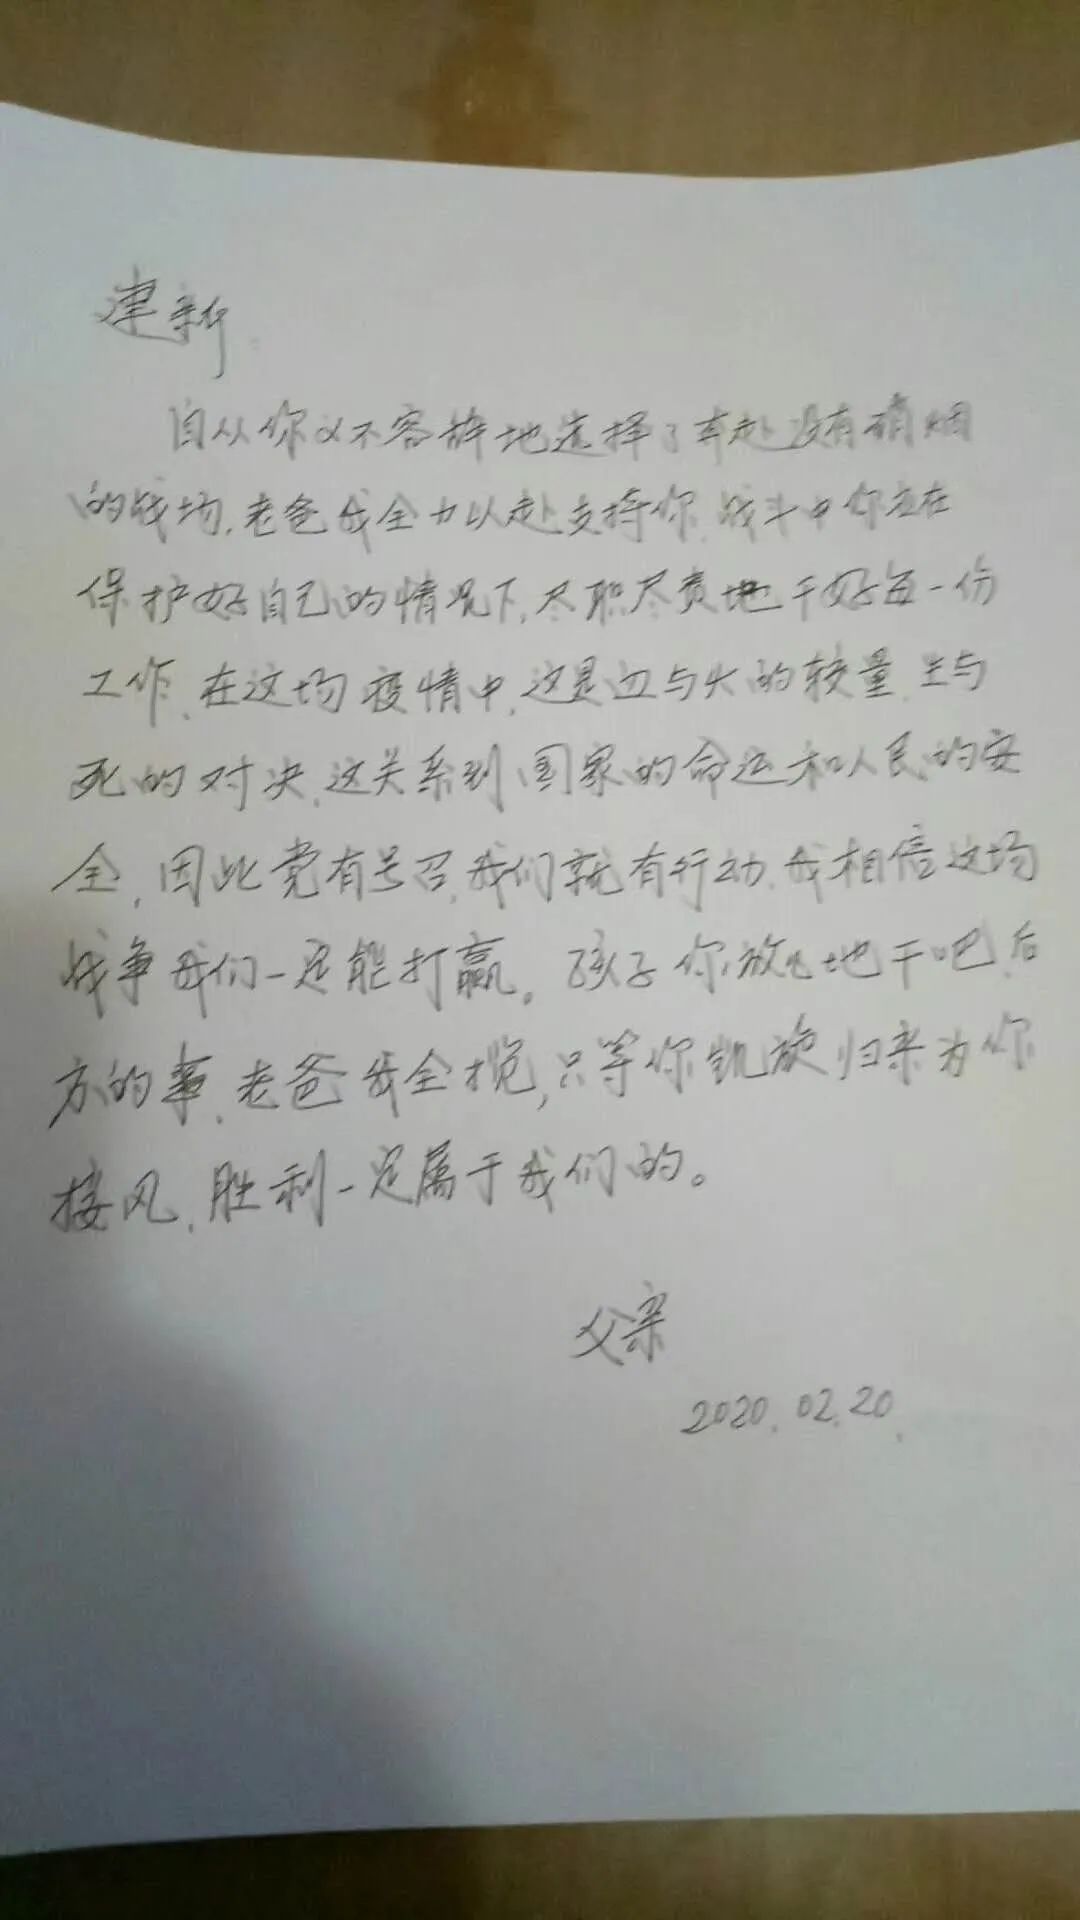 建新:
自从你义不容辞地选择了奔赴没有硝烟
的战场,老爸我全力以赴支持你,战斗中你应在
保护好自己的情况下,尽职尽责地干好每一份
工作,在这场疫情中,这是血与火的较量,生与
死的对决,这关系到国家的命运和人民的安
全,因此党有号召,我们就有行动,我相信这场
战争我们一定能打赢。孩子你放心地干吧,后
方的事,老爸我全揽,只等你凯旋归来为你
接风,胜利一定属于我们的。
父亲
2020.02.20.